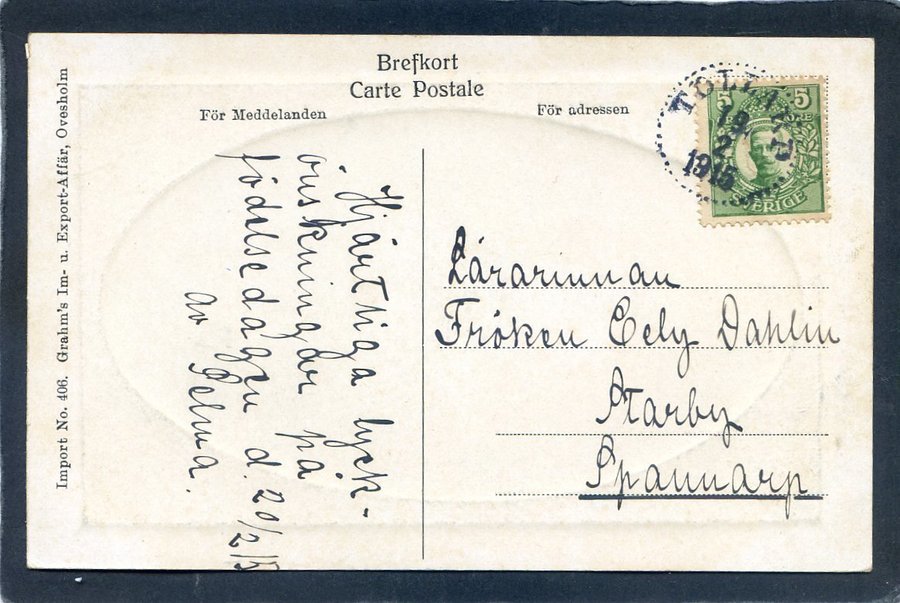 Brefkort
Carte Postale
För Meddelanden
För adressen
Import No. 406. Grahm's Im- u. Export-Affär, Ovesholm
Hjärtliga lyck-
önskningar på
födelsedagen d. 20/2 15
av Selma.
TOLLARP
19
2
1915
5 5
ÖRE
SVERIGE
Lärarinnan
Fröken Eely Dahlin
Starby
Spannarp